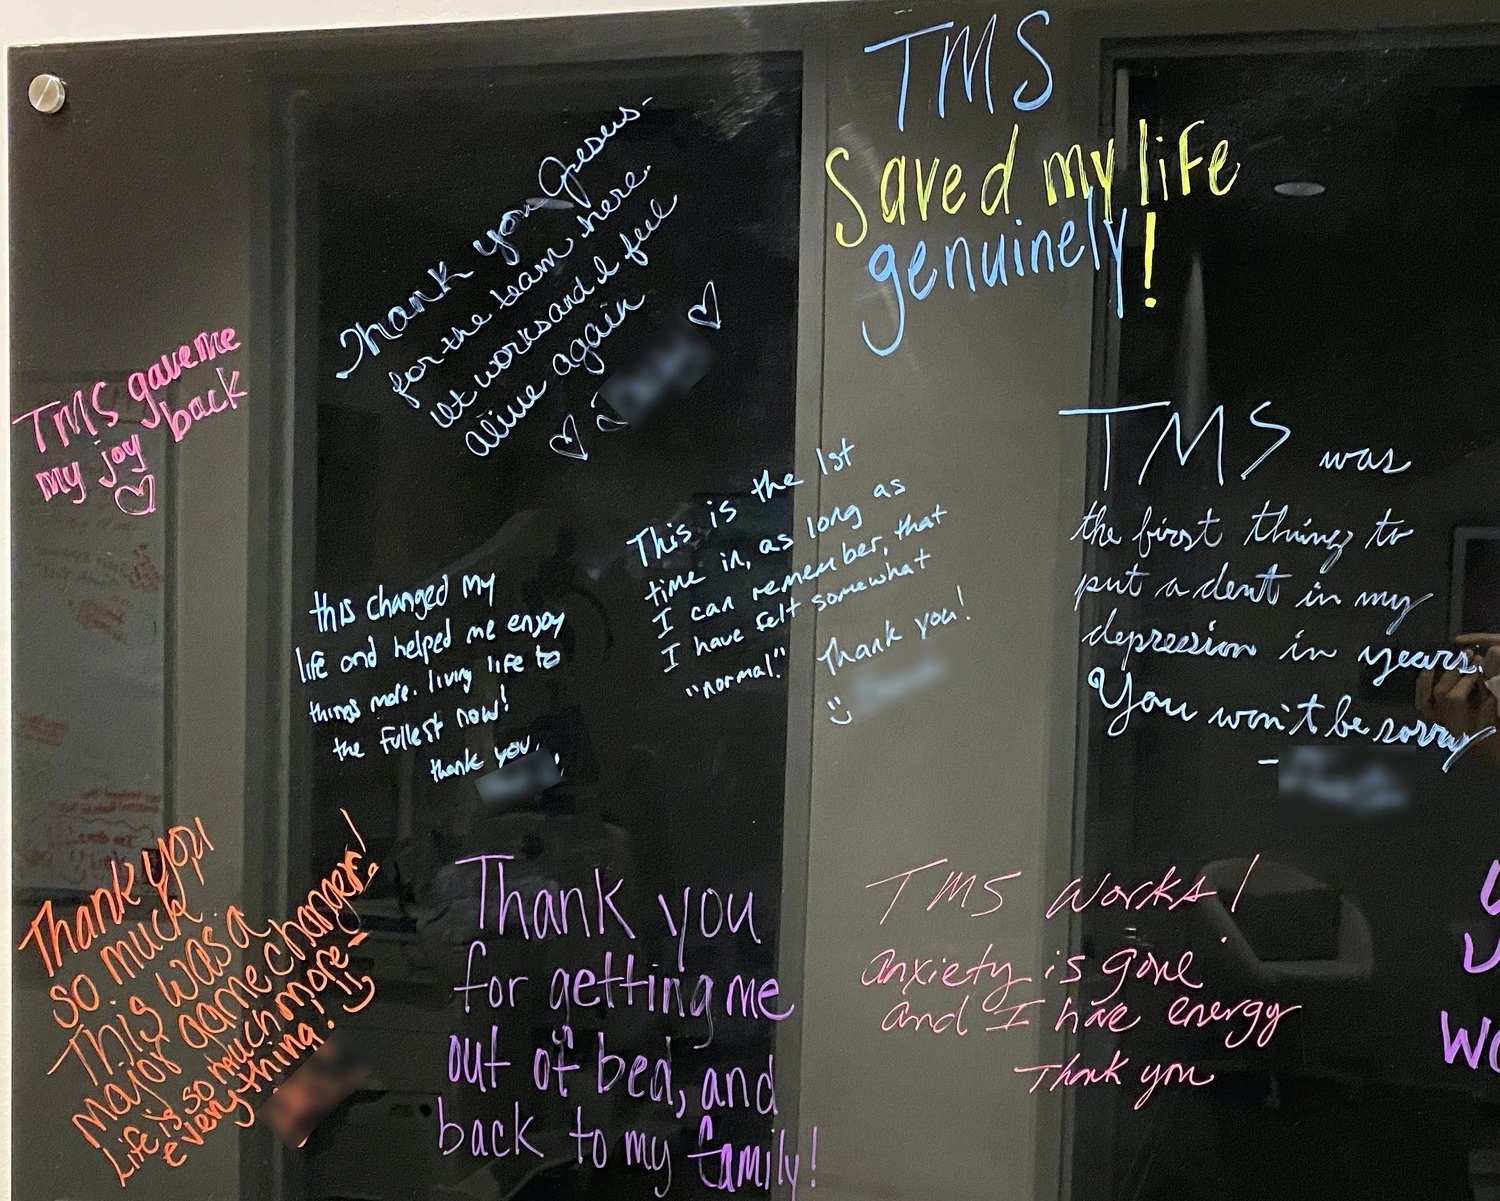 TMS
Saved my life
genuinely!
Thank you Jesus-
for the team here.
It works and I feel
alive again
TMS gave me
my joy back
This is the 1st
time in, as long as
I can remember, that
I have felt somewhat
"normal." Thank you!
TMS was
the first thing to
put a dent in my
depression in years.
You won't be sorry
this changed my
life and helped me enjoy
things more. living life to
the fullest now!
thank you,
Thank you
so much.
This was a
major game changer!
Life is so much more-
everything!
Thank you
for getting me
out of bed, and
back to my family!
TMS works!
anxiety is gone
and I have energy
Thank you